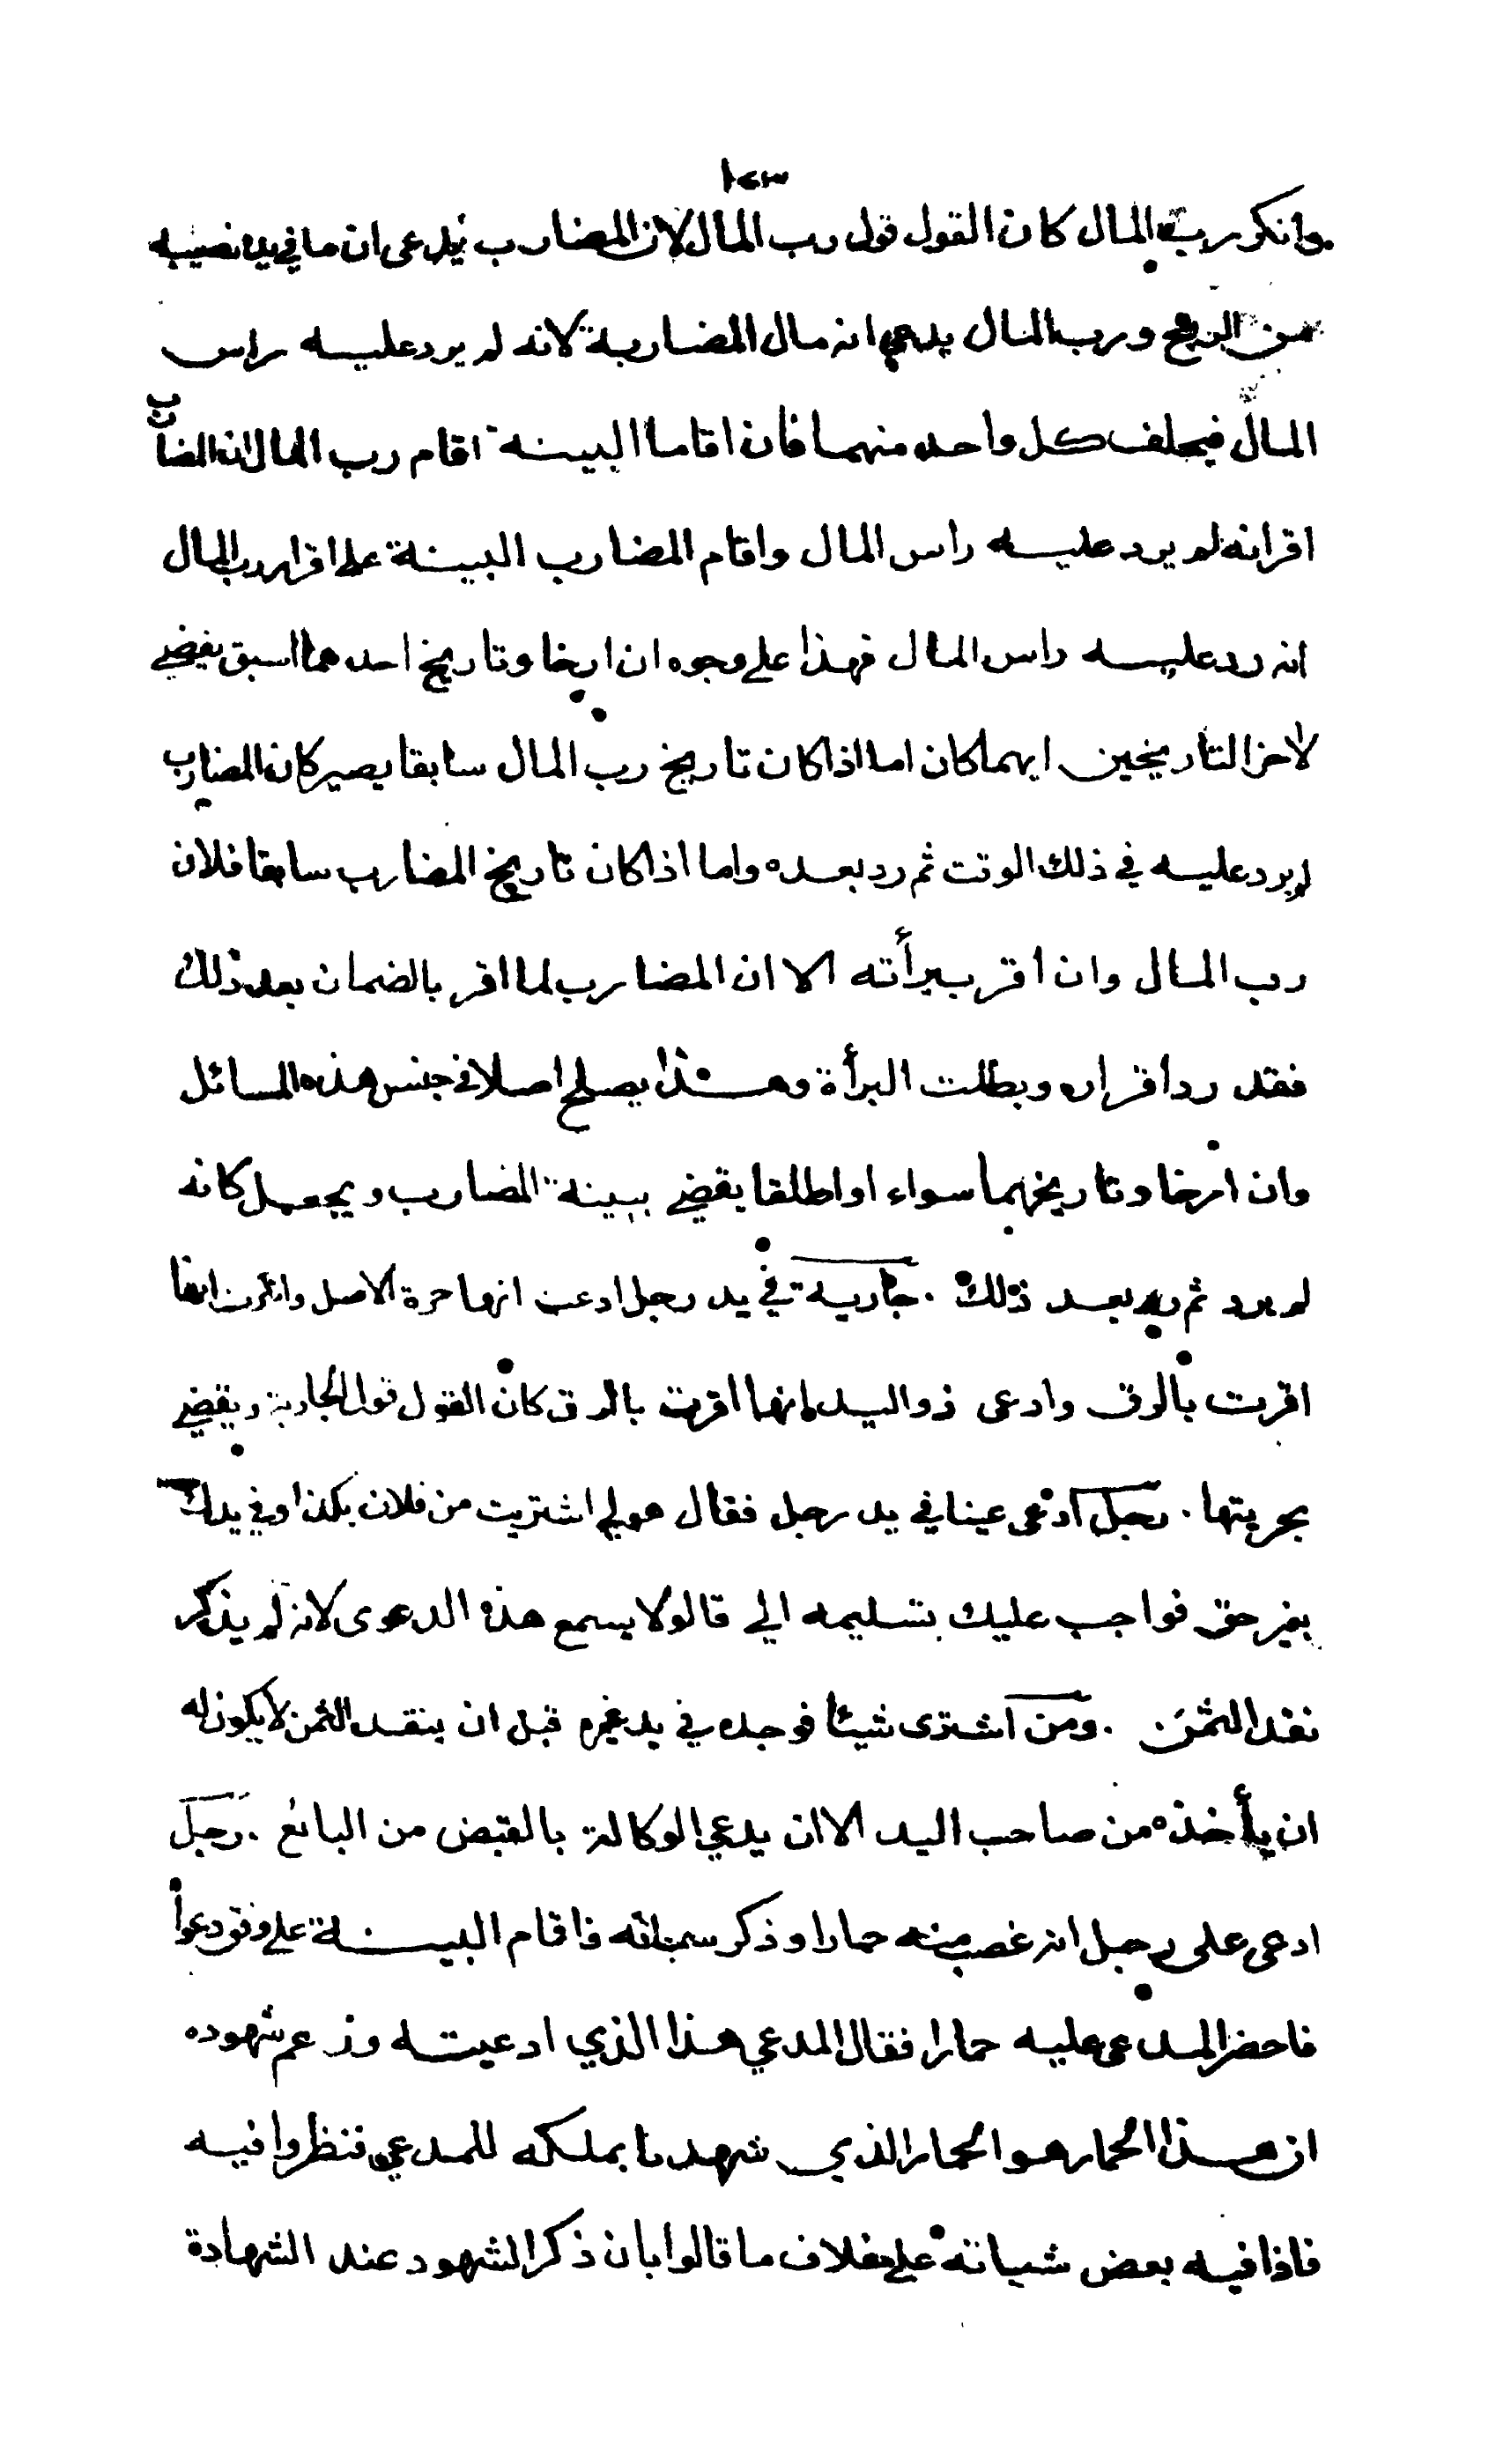 ١٤٣
وانكر رب المال كان القول قول رب المال لان المضارب يدعى ان ما في يده نصيبه
من الربح ورب المال يدعي انه مال المضاربة لانه لم يرد عليه راس
المال فيحلف كل واحد منهما فان اقاما البينة اقام رب المال ان المضارب
اقر انه لم يرد عليه راس المال واقام المضارب البينة على اقرار رب المال
انه رد عليه راس المال فهذا على وجوه ان ارخا وتاريخ احدهما اسبق يقضي
لاخر التاريخين ايهما كان اما اذا كان تاريخ رب المال سابقا يصير كان المضارب
لم يرد عليه في ذلك الوقت ثم رد بعده واما اذا كان تاريخ المضارب سابقا فلان
رب المال وان اقر ببرأته الا ان المضارب لما اقر بالضمان بعد ذلك
فقد رد اقراره وبطلت البرأة وهذا يصلح اصلا في جنس هذه المسائل
وان ارخا وتاريخهما سواء او اطلقا يقضي ببينة المضارب ويجعل كانه
لم يرد ثم رد بعد ذلك . جارية في يد رجل ادعت انها حرة الاصل وانكرت انها
اقرت بالرق وادعى ذو اليد انها اقرت بالرق كان القول قول الجارية ويقضي
بحريتها . رجل ادعى عينا في يد رجل فقال هو لي اشتريت من فلان بكذا وفي يدك
بغير حق فواجب عليك تسليمه الي قالو لا يسمع هذه الدعوى لانه لم يذكر
نقد الثمن . ومن اشترى شيئا فوجده في يد غيره قبل ان ينقد الثمن لا يكون له
ان يأخذه من صاحب اليد الا ان يدعي الوكالة بالقبض من البائع . رجل
ادعى على رجل انه غصب منه حمارا وذكر سماته فاقام البينة على وفق دعوا
فاحضر المدعى عليه حمارا فقال المدعي هذا الذي ادعيته وزعم شهوده
ان هذا الحمار هو الحمار الذي شهدنا بملكه للمدعي فنظروا فيه
فاذا فيه بعض شياته على خلاف ما قالوا بان ذكر الشهود عند الشهادة